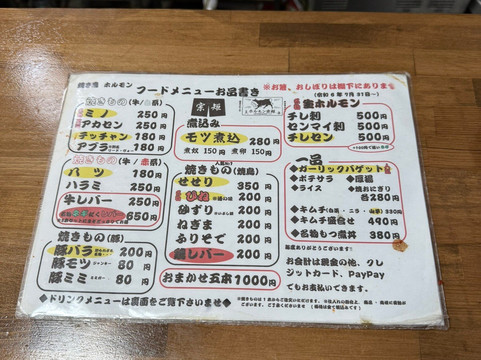 焼き屋 ホルモン
フードメニューお品書き
※お箸、おしぼりは机下にあります
(令和6年7月31日~)
焼きもの(牛/白系)
ミノ 250円
アカセン 250円
チッチャン 180円
アブラ 180円
焼きもの(牛/赤系)
ハツ 180円
ハラミ 250円
牛レバー 250円
650円
焼きもの(豚)
豚バラ 200円
豚モツ 80円
豚ミミ 80円
煮込み
モツ煮込 280円
煮奴 150円 煮卵 150円
人気No.1
焼きもの(焼鳥)
せせり 350円
ひね 200円
ずり 200円
ねぎま 200円
ふりそで 200円
鶏レバー 200円
おまかせ五本1000円
生ホルモン
チレ刺 500円
センマイ刺 500円
チレセン 500円
一品
◆ガーリックバゲット
◆ポテサラ ◆厚揚
◆ライス ◆焼おにぎり
各280円
◆キムチ(白菜・ニラ・山芋)330円
◆キムチ盛合せ 490円
◆名物もつ煮丼 380円
毎度ありがとうございます!
お会計は現金の他、クレ
ジットカード、PayPay
でもお支払いできます。
◆ドリンクメニューは裏面をご覧下さいませ◆